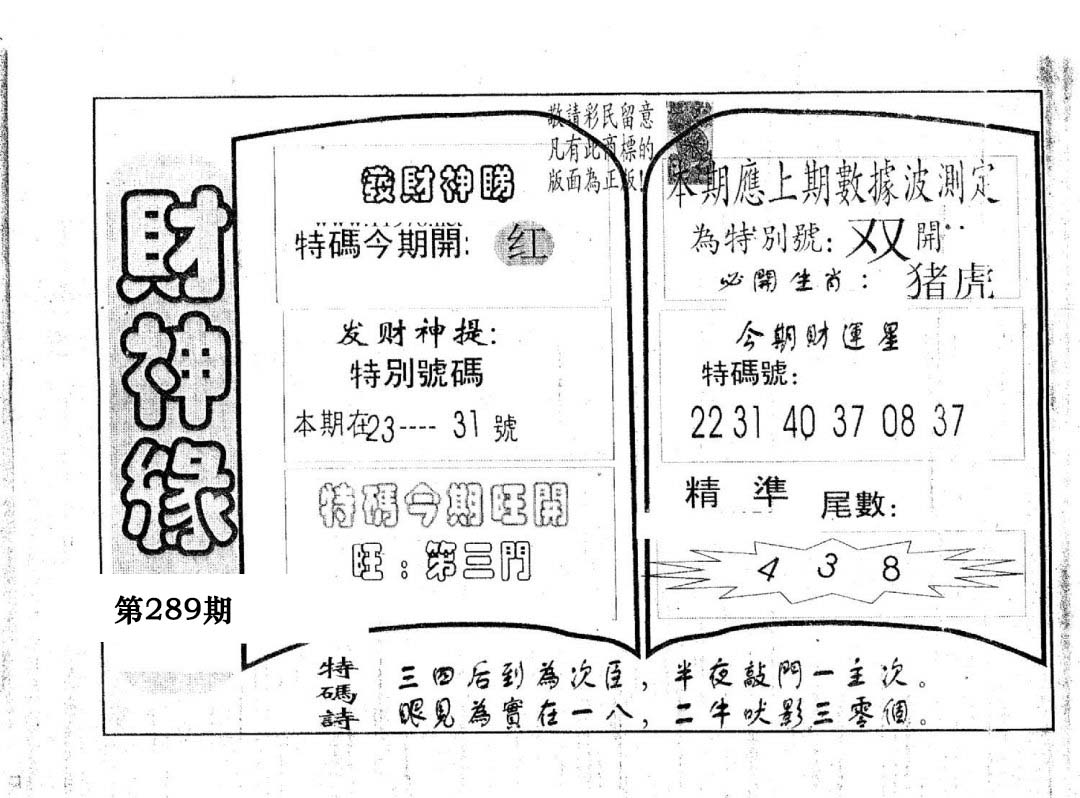 財神緣
第289期
敬請彩民留意
凡有此商標的
版面為正版!
發財神睇
特碼今期開: 红
发财神提:
特別號碼
本期在23---- 31號
特碼今期旺開
旺:第三門
本期應上期數據波測定
為特別號:双開
必開生肖:猪虎
今期財運星
特碼號:
22 31 40 37 08 37
精準 尾數:
4 3 8
特碼詩
三四后到為次臣,半夜敲門一主次。
眼見為實在一八,二牛吠影三零個。